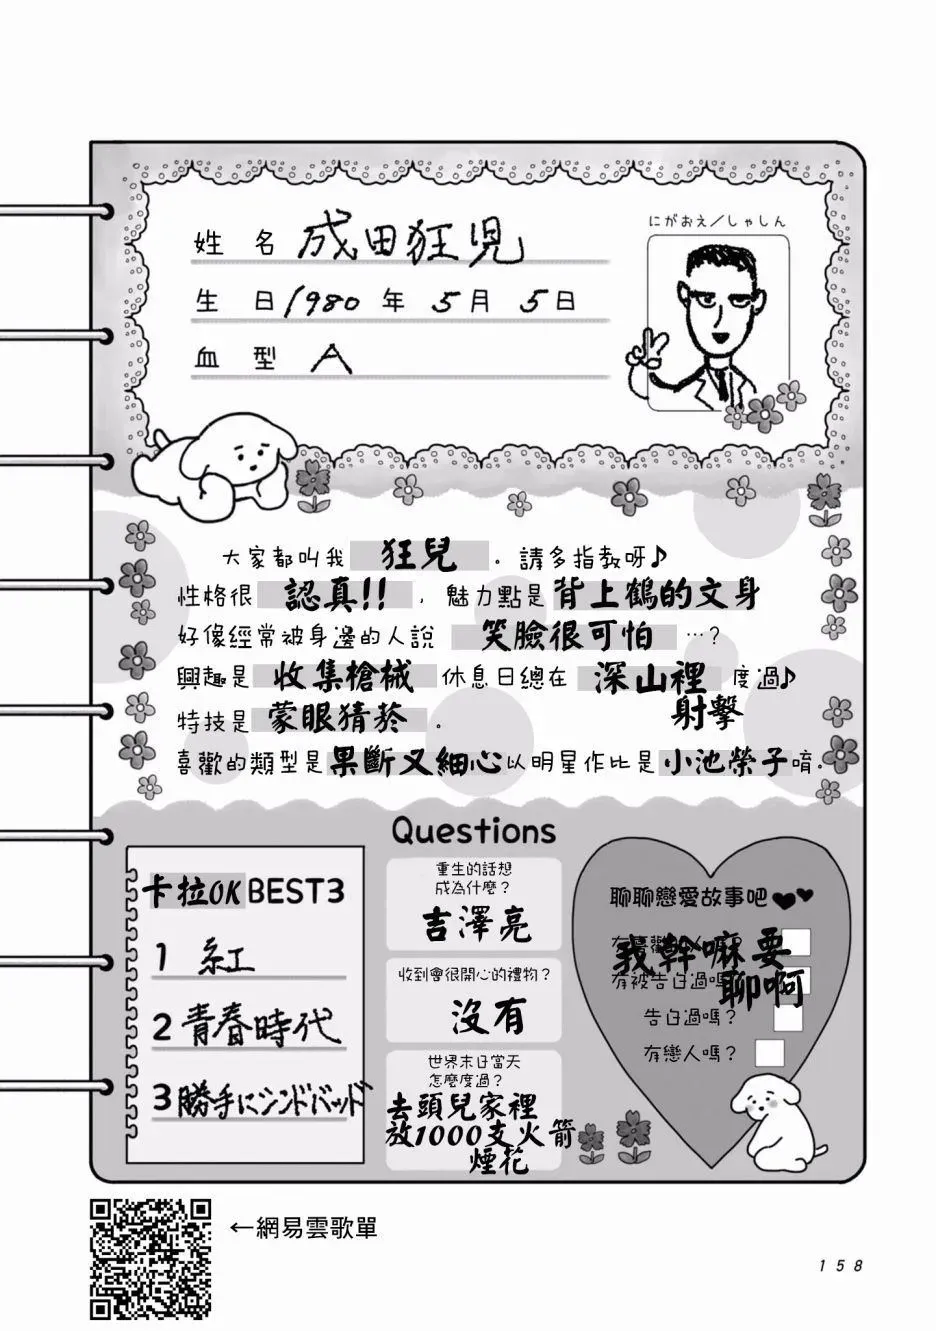 にがおえ／しゃしん
姓 名 成田狂児
生 日 1980 年 5 月 5 日
血 型 A
大家都叫我 狂兒 。請多指教呀♪
性格很 認真!! ，魅力點是 背上鶴的文身
好像經常被身邊的人說 笑臉很可怕 …？
興趣是 收集槍械 休息日總在 深山裡 度過♪
射擊
特技是 蒙眼猜菸 。
喜歡的類型是 果斷又細心 以明星作比是 小池榮子 唷。
Questions
卡拉OK BEST3
1 紅
2 青春時代
3 勝手にシンドバッド
重生的話想
成為什麼？
吉澤亮
收到會很開心的禮物？
沒有
世界末日當天
怎麼度過？
去頭兒家裡
放1000支火箭
煙花
聊聊戀愛故事吧
我幹嘛要
聊啊
有被告白過嗎？
告白過嗎？
有戀人嗎？
←網易雲歌單
158